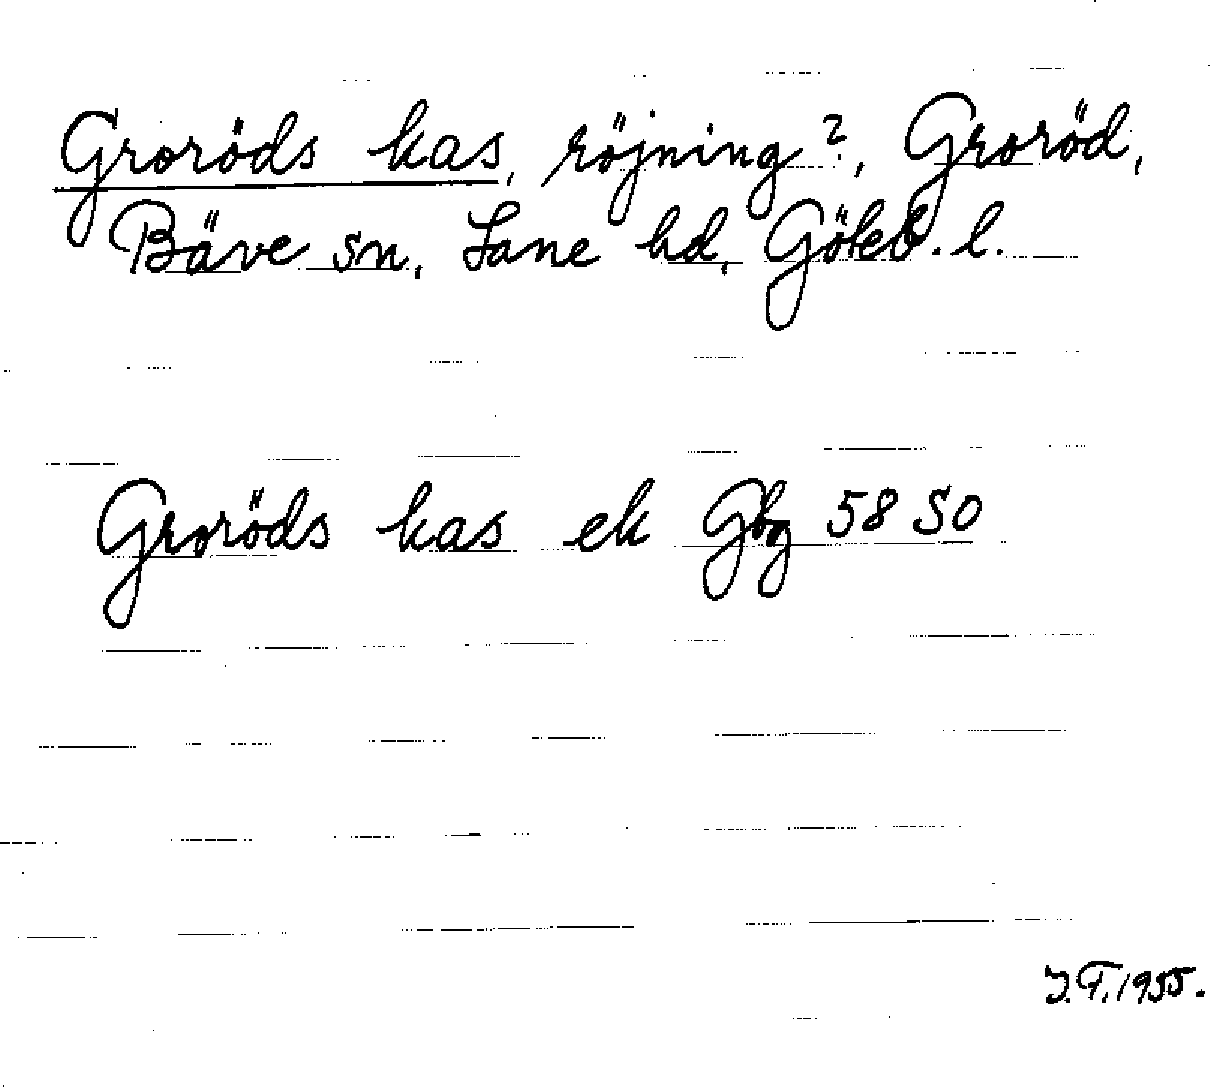 Groröds kas, röjning?, Groröd,
Bäve sn, Lane hd, Göteb. l.
Groröds kas ek Gbg 58 SO
J.T. 1955.